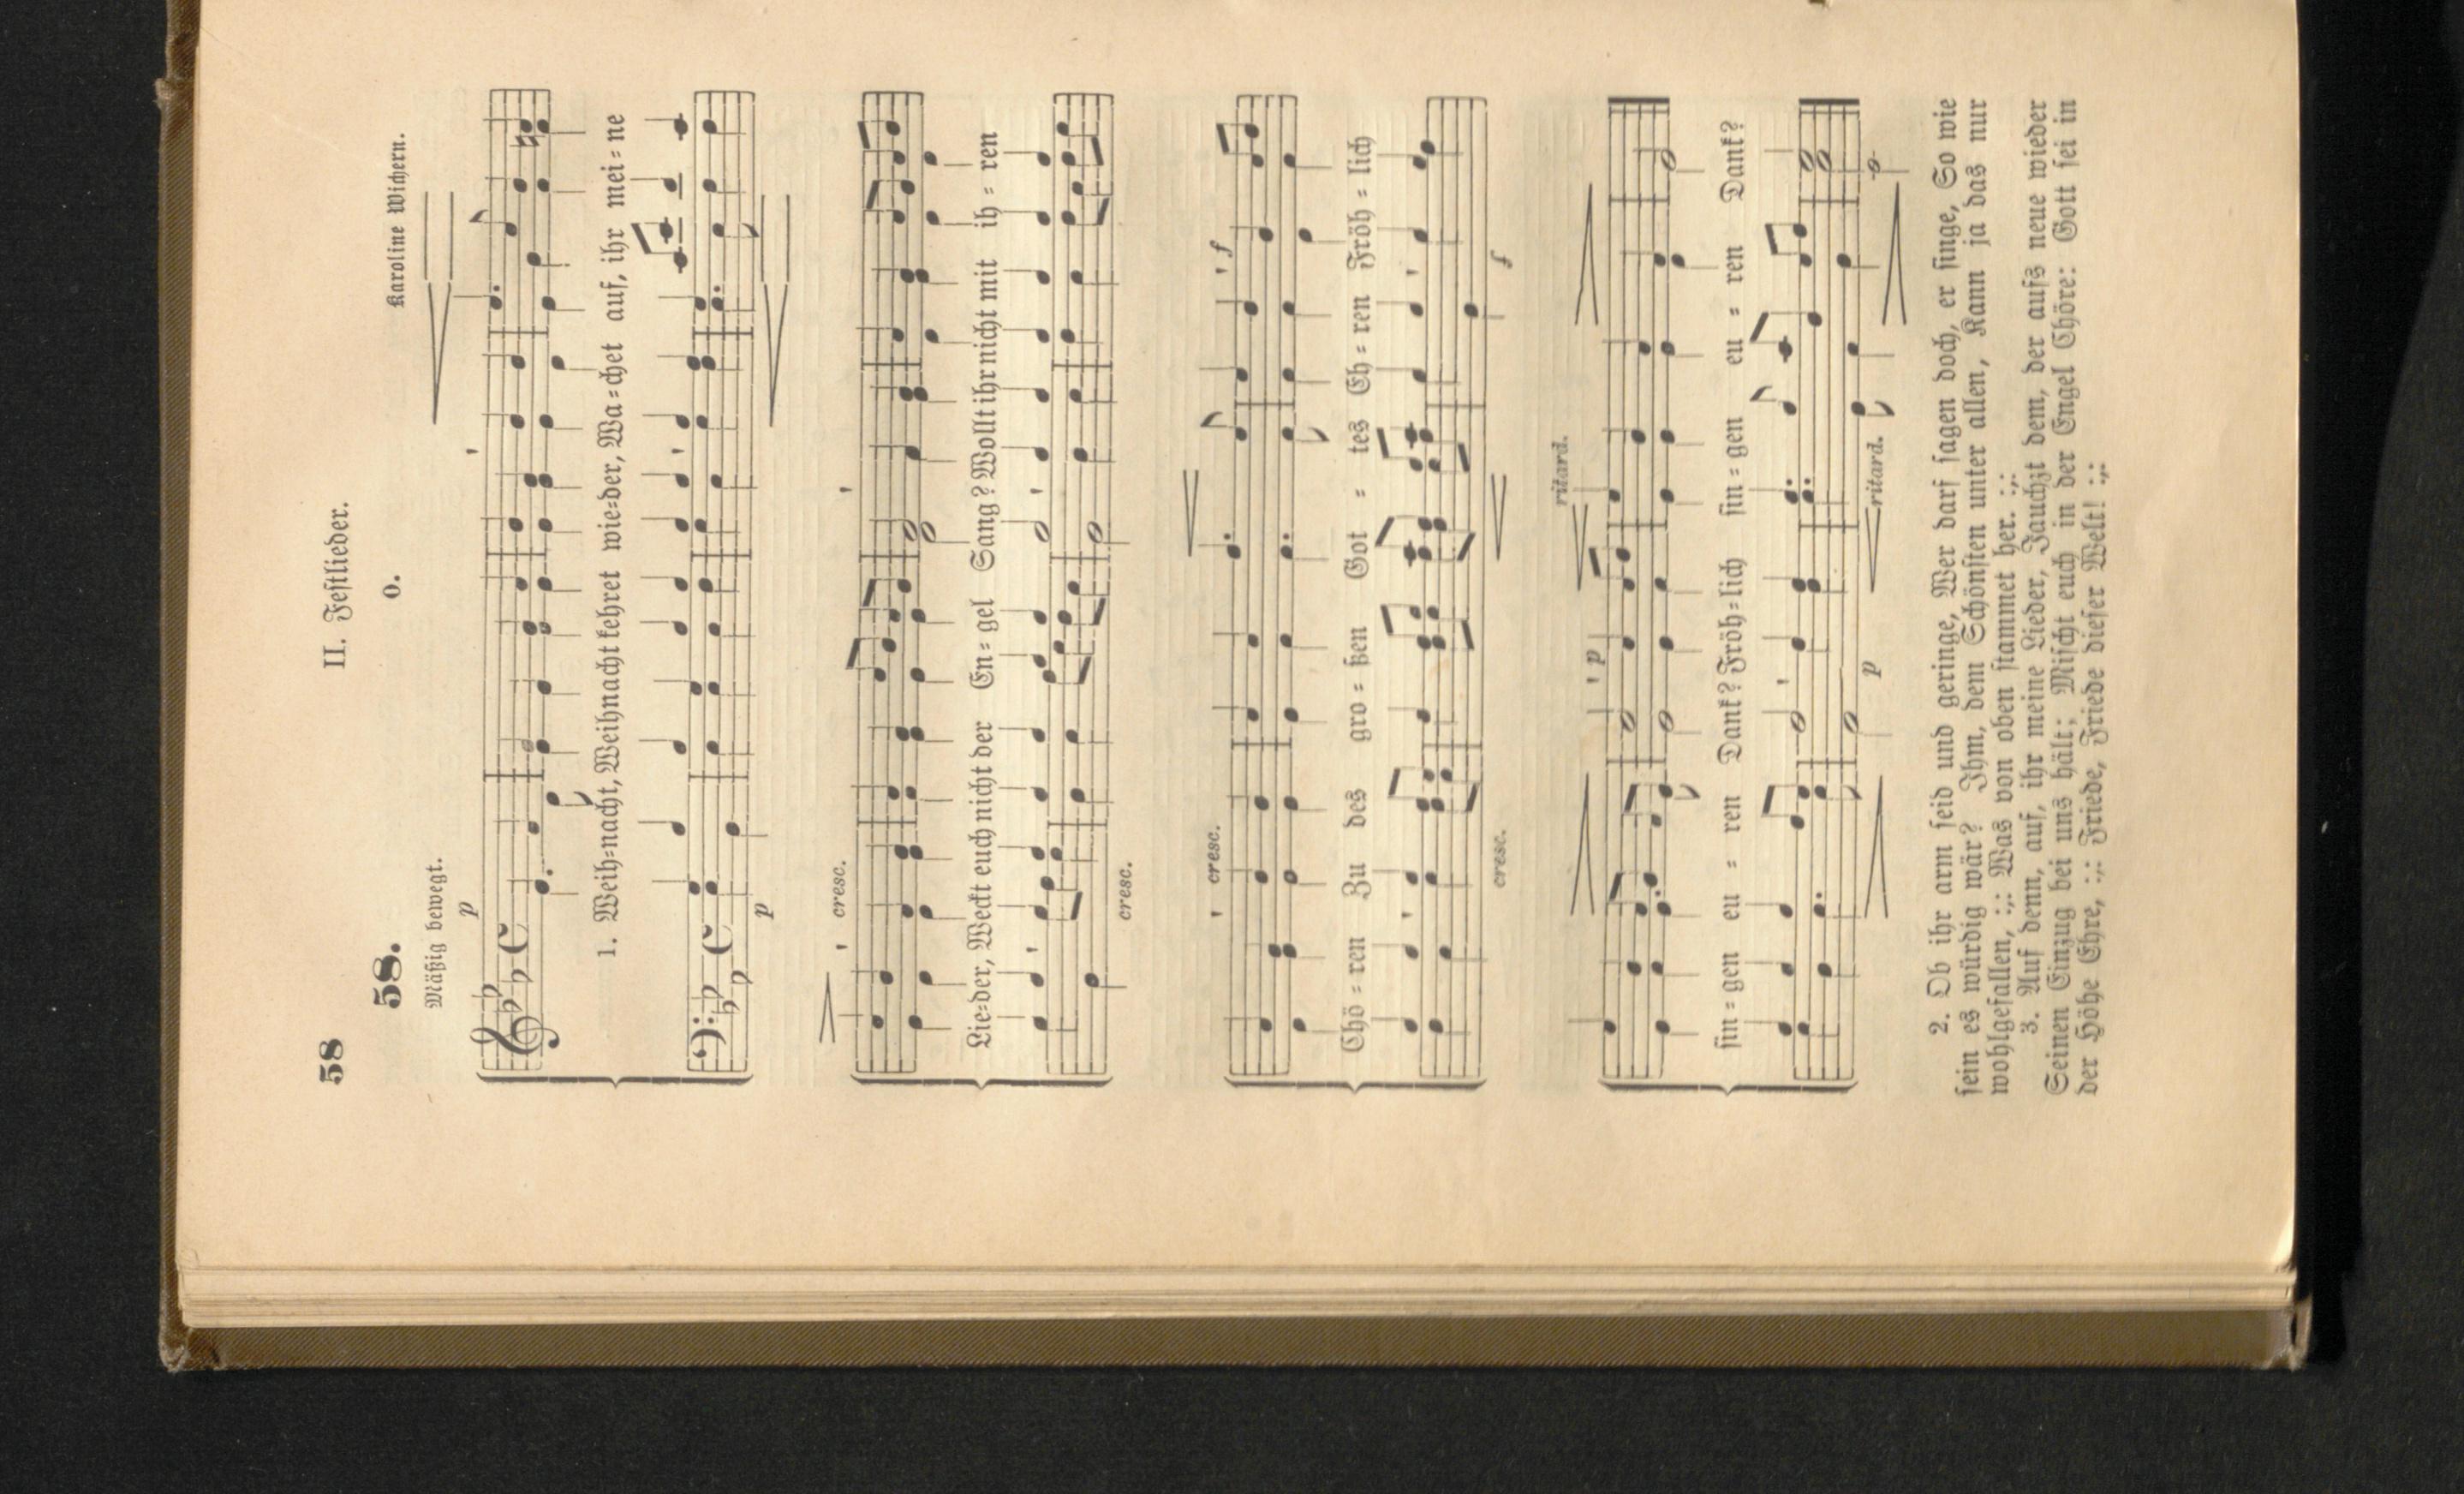 58
II. Festlieder.
58.
o.
Karoline Wichern.
Mäßig bewegt.
p
1. Weih=nacht, Weihnacht kehret wie=der, Wa=chet auf, ihr mei=ne
p
cresc.
Lie=der, Weckt euch nicht der En=gel Sang? Wollt ihr nicht mit ih=ren
cresc.
cresc. f
Chö=ren Zu des gro=ßen Got=tes Eh=ren Fröh=lich
cresc. f
p ritard.
sin=gen eu=ren Dank? Fröh=lich sin=gen eu=ren Dank?
p ritard.
2. Ob ihr arm seid und geringe, Wer darf sagen doch, er singe, So wie
sein es würdig wär? Ihm, dem Schönsten unter allen, Kann ja das nur
wohlgefallen, :,: Was von oben stammet her. :,:
3. Auf denn, auf, ihr meine Lieder, Jauchzt dem, der aufs neue wieder
Seinen Einzug bei uns hält; Mischt euch in der Engel Chöre: Gott sei in
der Höhe Ehre, :,: Friede, Friede dieser Welt! :,: